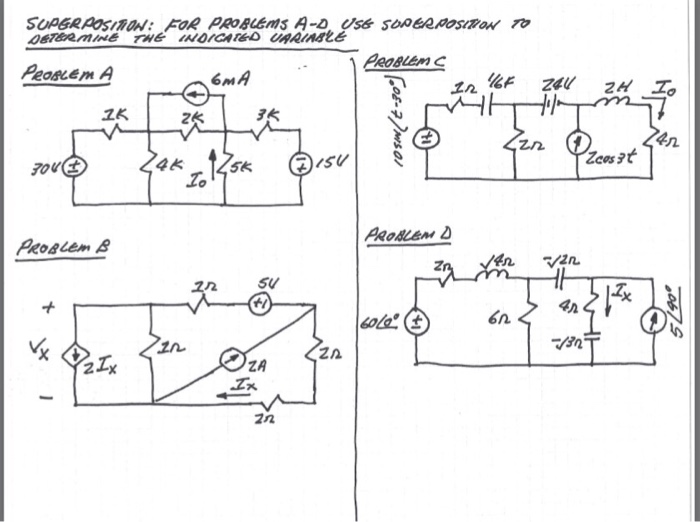 SUPERPOSITION: FOR PROBLEMS A-D USE SUPERPOSITION TO
DETERMINE THE INDICATED VARIABLE
PROBLEM A
6mA
1K
2K
3K
30V
4K
Io
5K
15V
PROBLEM B
1Ω
5V
+
Vx
-
2Ix
1Ω
2A
2Ω
Ix
2Ω
PROBLEM C
1Ω
1/6F
24V
2H
Io
10sin(t-30°)
2Ω
2cos3t
4Ω
PROBLEM D
2Ω
j4Ω
-j2Ω
60/0°
6Ω
4Ω
Ix
-j3Ω
5/40°